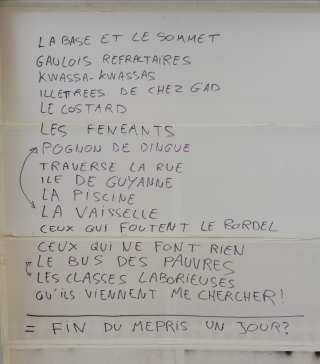 LA BASE ET LE SOMMET
GAULOIS REFRACTAIRES
KWASSA-KWASSAS
ILLETREES DE CHEZ GAD
LE COSTARD
LES FENEANTS
POGNON DE DINGUE
TRAVERSE LA RUE
ILE DE GUYANNE
LA PISCINE
LA VAISSELLE
CEUX QUI FOUTENT LE BORDEL
CEUX QUI NE FONT RIEN
LE BUS DES PAUVRES
LES CLASSES LABORIEUSES
QU'ILS VIENNENT ME CHERCHER!
= FIN DU MEPRIS UN JOUR?